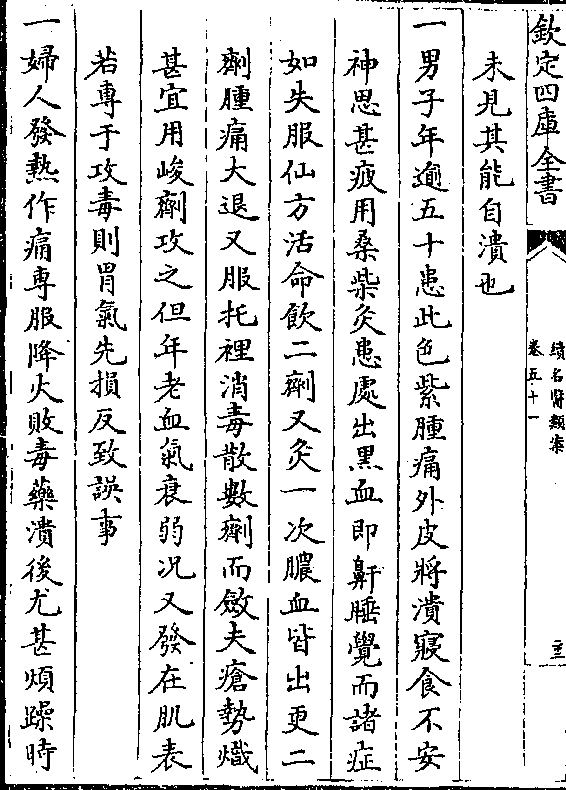 欽定四庫全書
續名醫類案
卷五十一
未見其能自潰也
一男子年逾五十患此色紫腫痛外皮將潰寢食不安
神思甚疲用桑柴灸患處出黑血即鼾睡覺而諸症
如失服仙方活命飲二劑又灸一次膿血皆出更二
劑腫痛大退又服托裡消毒散數劑而斂夫瘡勢熾
甚宜用峻劑攻之但年老血氣衰弱况又發在肌表
若專于攻毒則胃氣先損反致誤事
一婦人發熱作痛專服降火敗毒藥潰後尤甚煩躁時